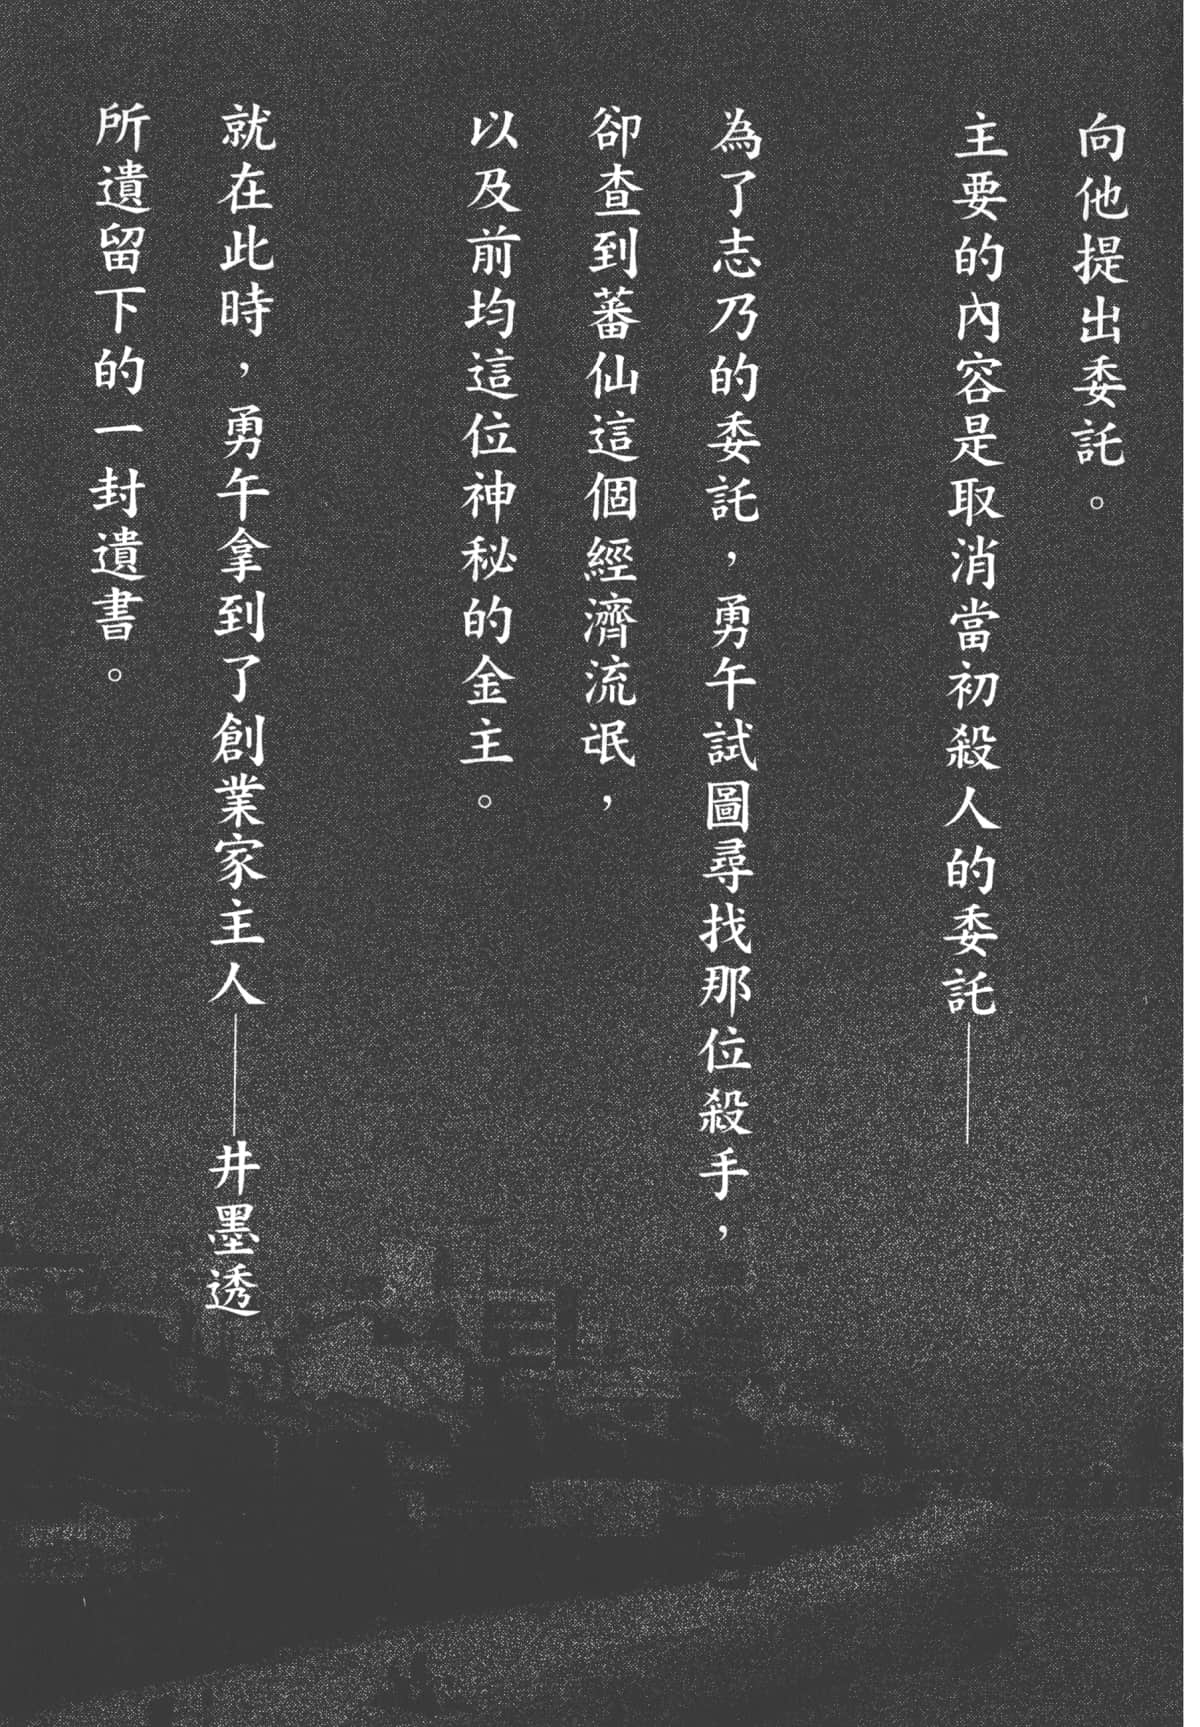 向他提出委託。
主要的內容是取消當初殺人的委託——
為了志乃的委託，勇午試圖尋找那位殺手，
卻查到蕃仙這個經濟流氓，
以及前均這位神秘的金主。
就在此時，勇午拿到了創業家主人——井墨透
所遺留下的一封遺書。